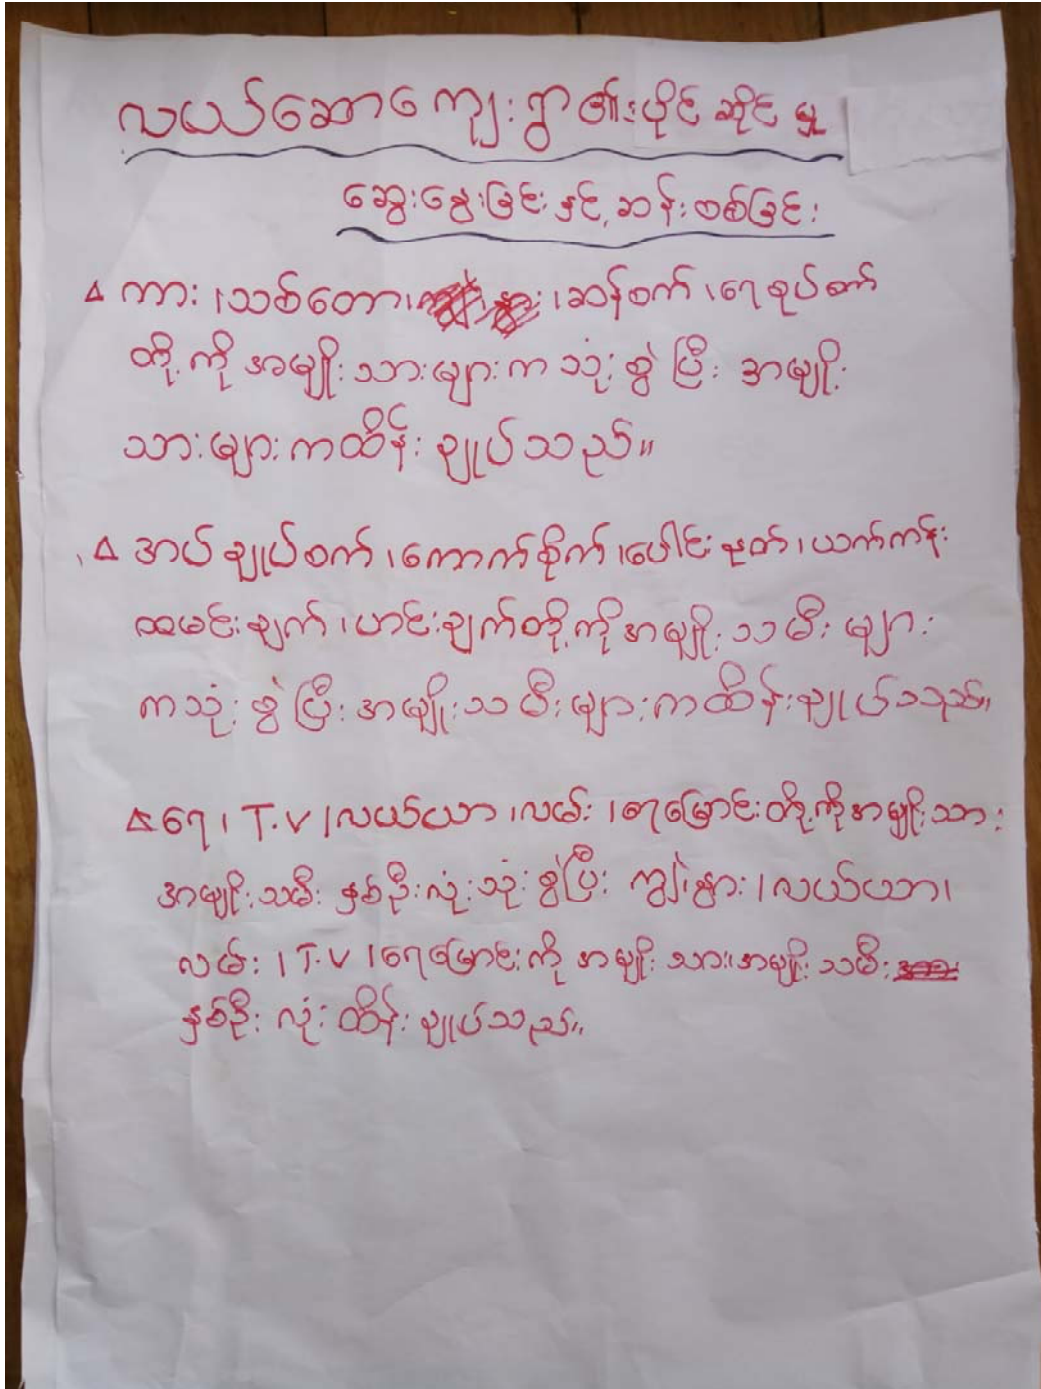 လယ်ဆောကျေးရွာ၏ပိုင်ဆိုင်မှု
ဆွေးနွေးခြင်းနှင့်ဆန်းစစ်ခြင်း
Δ ကား၊သစ်တော၊ ၊ဆန်စက်၊ရေစုပ်စက်
တို့ကိုအမျိုးသားများကသုံးစွဲပြီး အမျိုး
သားများကထိန်းချုပ်သည်။
Δ အပ်ချုပ်စက်၊ကောက်စိုက်၊ပေါင်းနုတ်၊ယက်ကန်း
ထမင်းချက်၊ဟင်းချက်တို့ကိုအမျိုးသမီးများ
ကသုံးစွဲပြီးအမျိုးသမီးများကထိန်းချုပ်သည်။
Δ ရေ၊ T.V၊လယ်ယာ၊လမ်း၊ရေမြောင်းတို့ကိုအမျိုးသား
အမျိုးသမီးနှစ်ဦးလုံးသုံးစွဲပြီး ကျွဲ၊နွား၊လယ်ယာ၊
လမ်း၊T.V၊ရေမြောင်းကိုအမျိုးသား၊အမျိုးသမီး
နှစ်ဦးလုံးထိန်းချုပ်သည်။